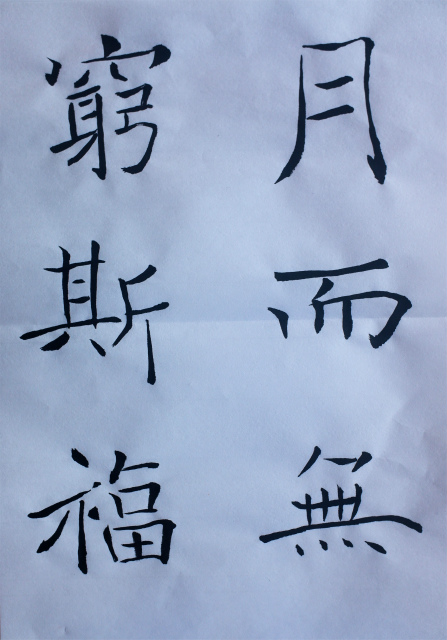 月而無
窮斯福